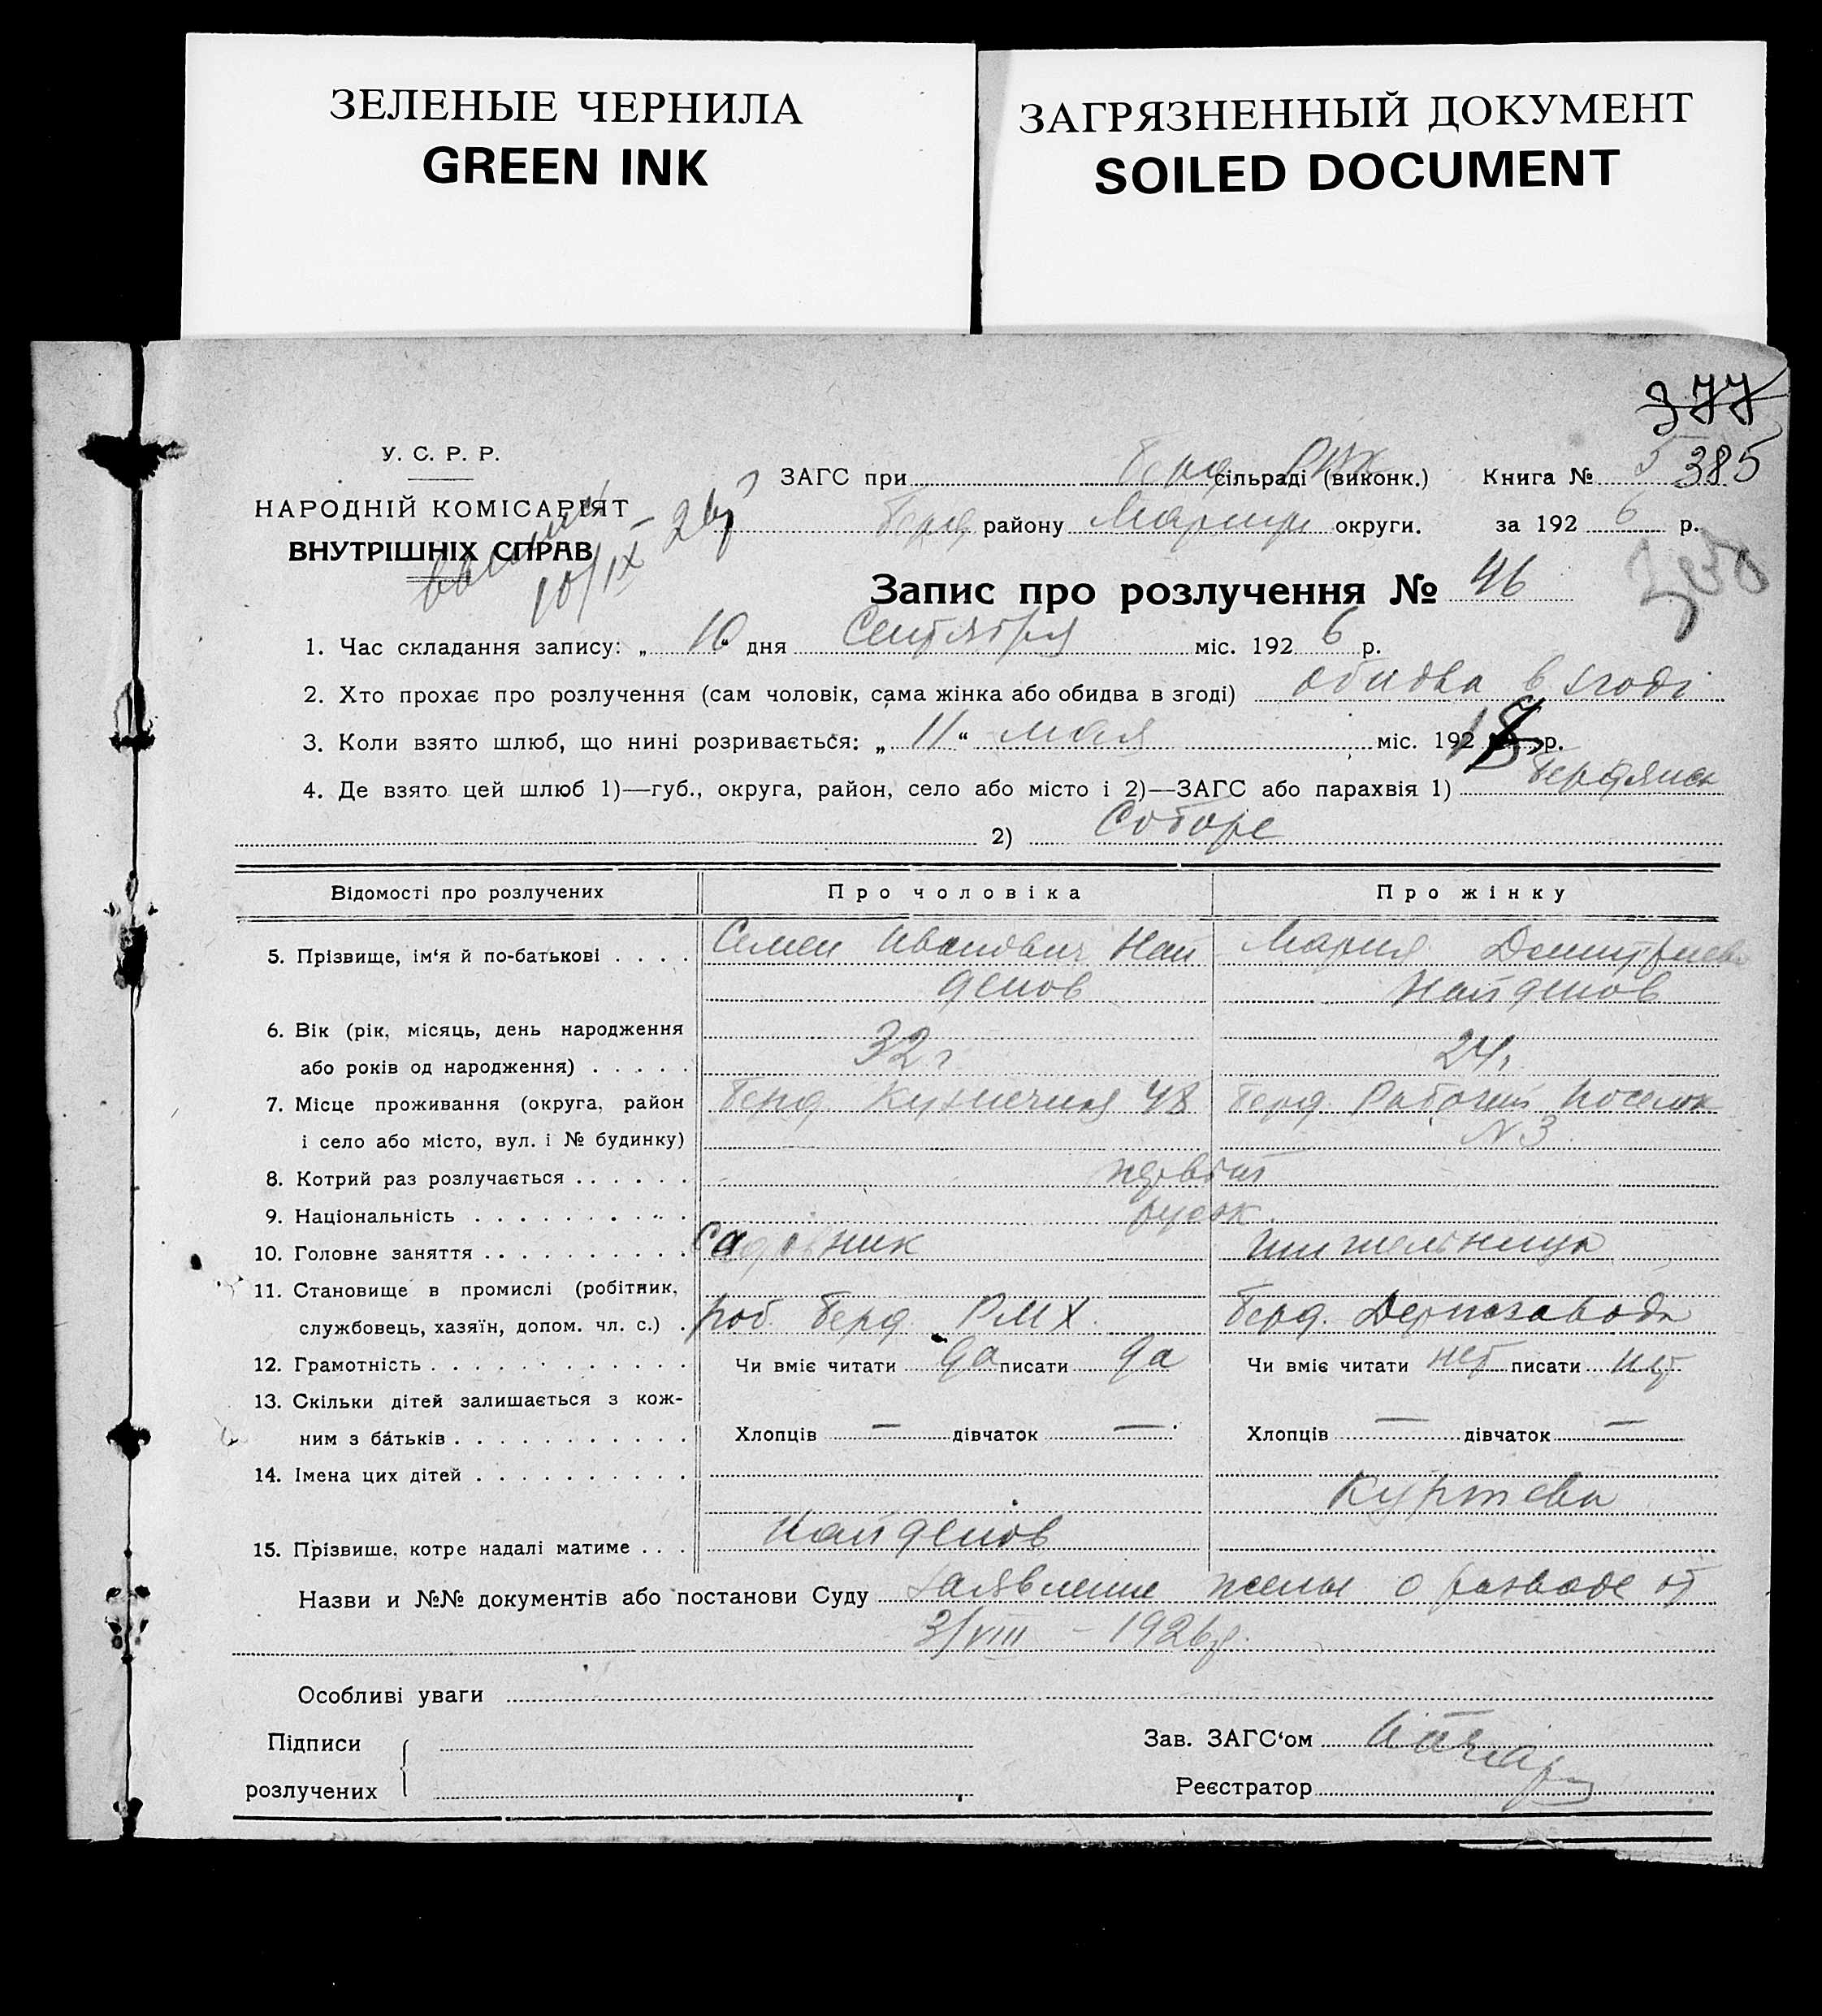 ЗЕЛЕНЫЕ ЧЕРНИЛА
GREEN INK
ЗАГРЯЗНЕННЫЙ ДОКУМЕНТ
SOILED DOCUMENT
377
У. С. Р. Р.
НАРОДНІЙ КОМІСАРІЯТ
ВНУТРІШНІХ СПРАВ
10/IX – 26 г
ЗАГС при Берд. РВК сільраді (виконк.) Книга № 5 385
Берд. району Мариуп округи. за 192 6 р.
Запис про розлучення № 46
1. Час складання запису: „ 10 “ дня Сентября міс. 192 6 р.
2. Хто прохає про розлучення (сам чоловік, сама жінка або обидва в згоді) обидва в згоді
3. Коли взято шлюб, що нині розривається: „ 11 “ мая міс. 192 р.
4. Де взято цей шлюб 1)—губ., округа, район, село або місто і 2)—ЗАГС або парахвія 1) Бердянск
2) Соборе
Відомості про розлучених Про чоловіка Про жінку
5. Прізвище, ім‘я й по-батькові . . . . Семен Иванович Най Мария Дмитриев
денов Найденов
6. Вік (рік, місяць, день народження
або років од народження) . . . . . 32 г 24 г.
7. Місце проживання (округа, район Берд. Кузнечная 48 Берд. Рабочий поселок
і село або місто, вул. і № будинку) N 3
8. Котрий раз розлучається . . . . . . первый
9. Національність . . . . . . . . . . русск
10. Головне заняття . . . . . . . . . . Садовник
11. Становище в промислі (робітник,
службовець, хазяїн, допом. чл. с.) . Раб. Берд. РМХ. Берд. Держзавода
12. Грамотність . . . . . . . . . . . . Чи вміє читати да писати да Чи вміє читати нет писати нет
13. Скільки дітей залишається з кож-
ним з батьків . . . . . . . . . . . Хлопців — дівчаток — Хлопців — дівчаток —
14. Імена цих дітей . . . . . . . . . .
Куртева
15. Прізвище, котре надалі матиме . . . Найденов
Назви и №№ документів або постанови Суду Заявление жены о разводе от
3/VIII – 1926 г.
Особливі уваги
Підписи
розлучених
Зав. ЗАГС‘ом
Реєстратор